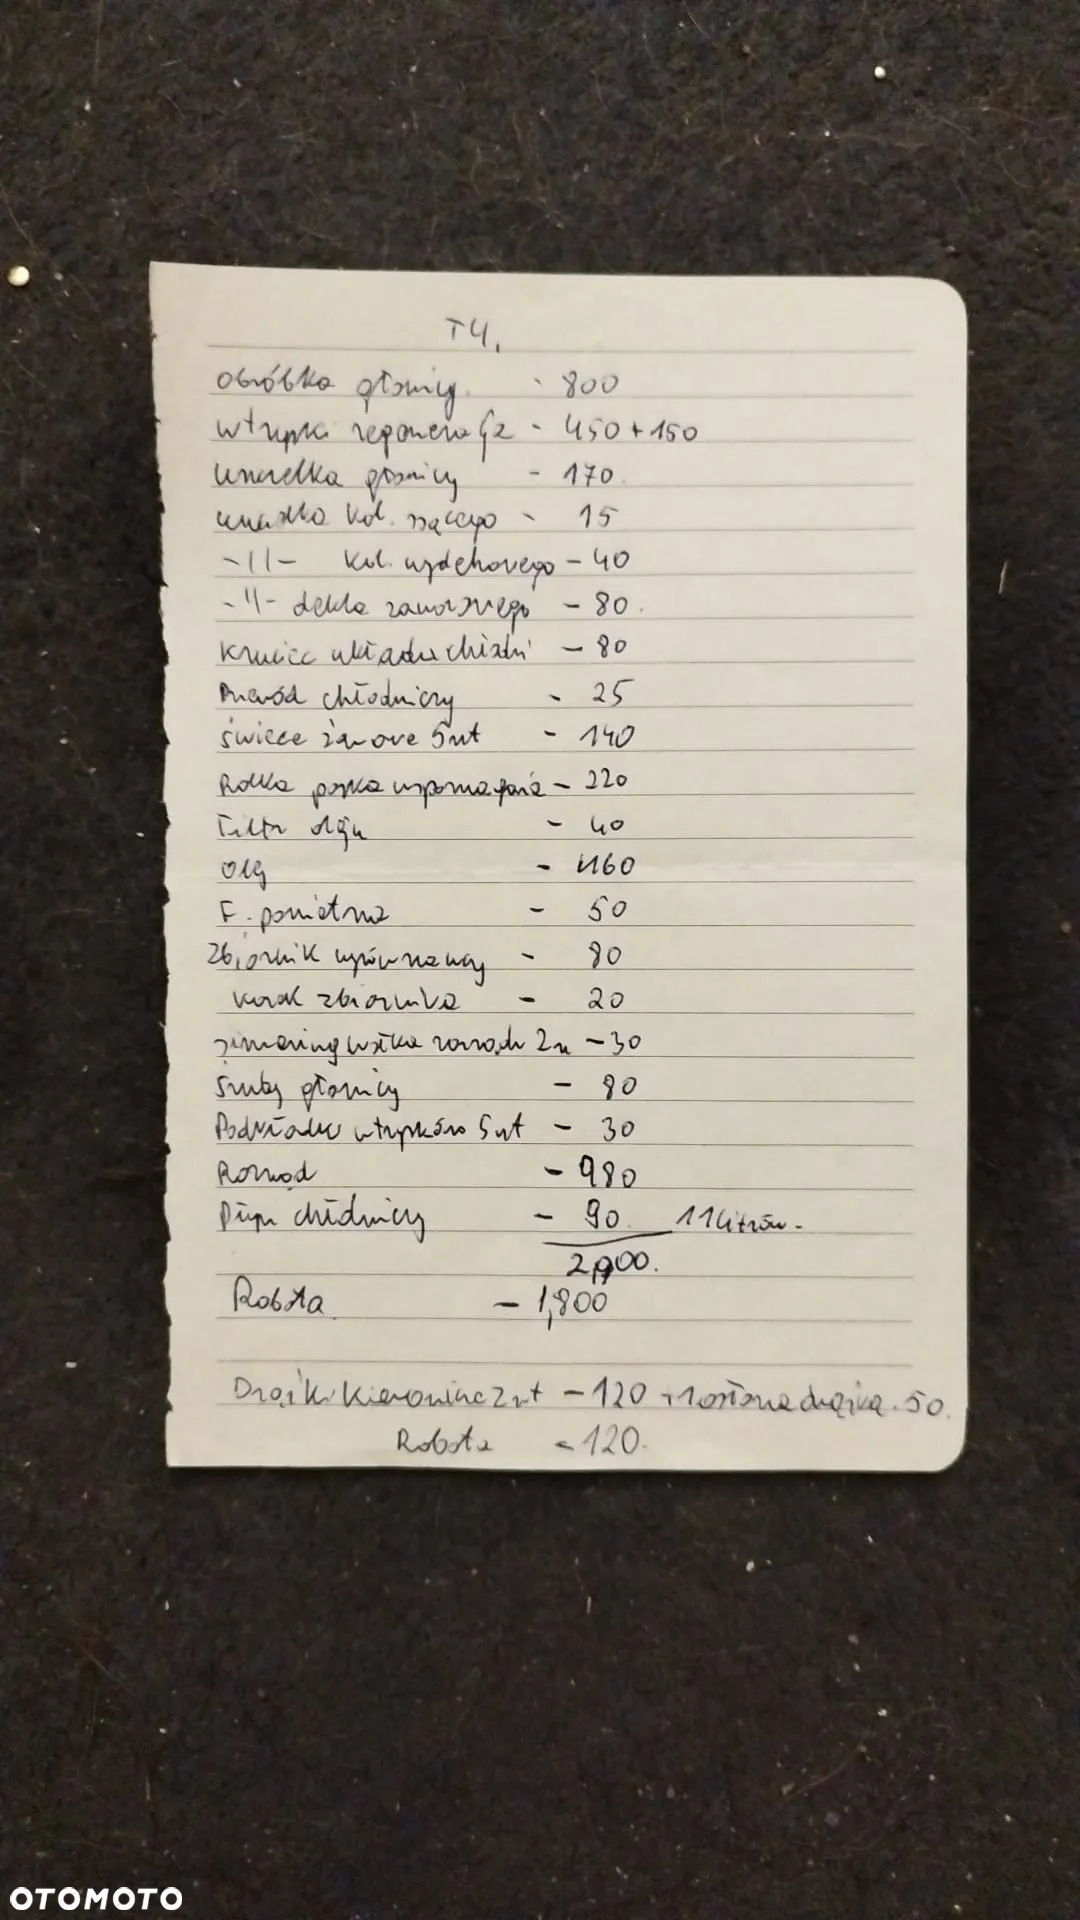 T4.
obróbka głowicy - 800
wtryski regeneracja - 450 + 150
uszczelka głowicy - 170
uszczelka kol. ssącego - 15
-||- kol. wydechowego - 40
-||- dekla zaworowego - 80.
Króciec układu chłodn - 80
Przewód chłodniczy - 25
świece żarowe 5szt - 140
Rolka paska wspomagania - 220
Filtr oleju - 40
olej - 160
F. powietrza - 50
Zbiornik wyrównawczy - 80
korek zbiornika - 20
simering wałka rozrządu 2x - 30
śruby głowicy - 80
Podkładki wtrysków 5szt - 30
Rozrząd - 980
Płyn chłodniczy - 90. 11 litrów.
Robota - 1,800
Drążki kierownicze 2szt - 120 + 1 osłona drążka. 50.
Robota - 120.
OTOMOTO